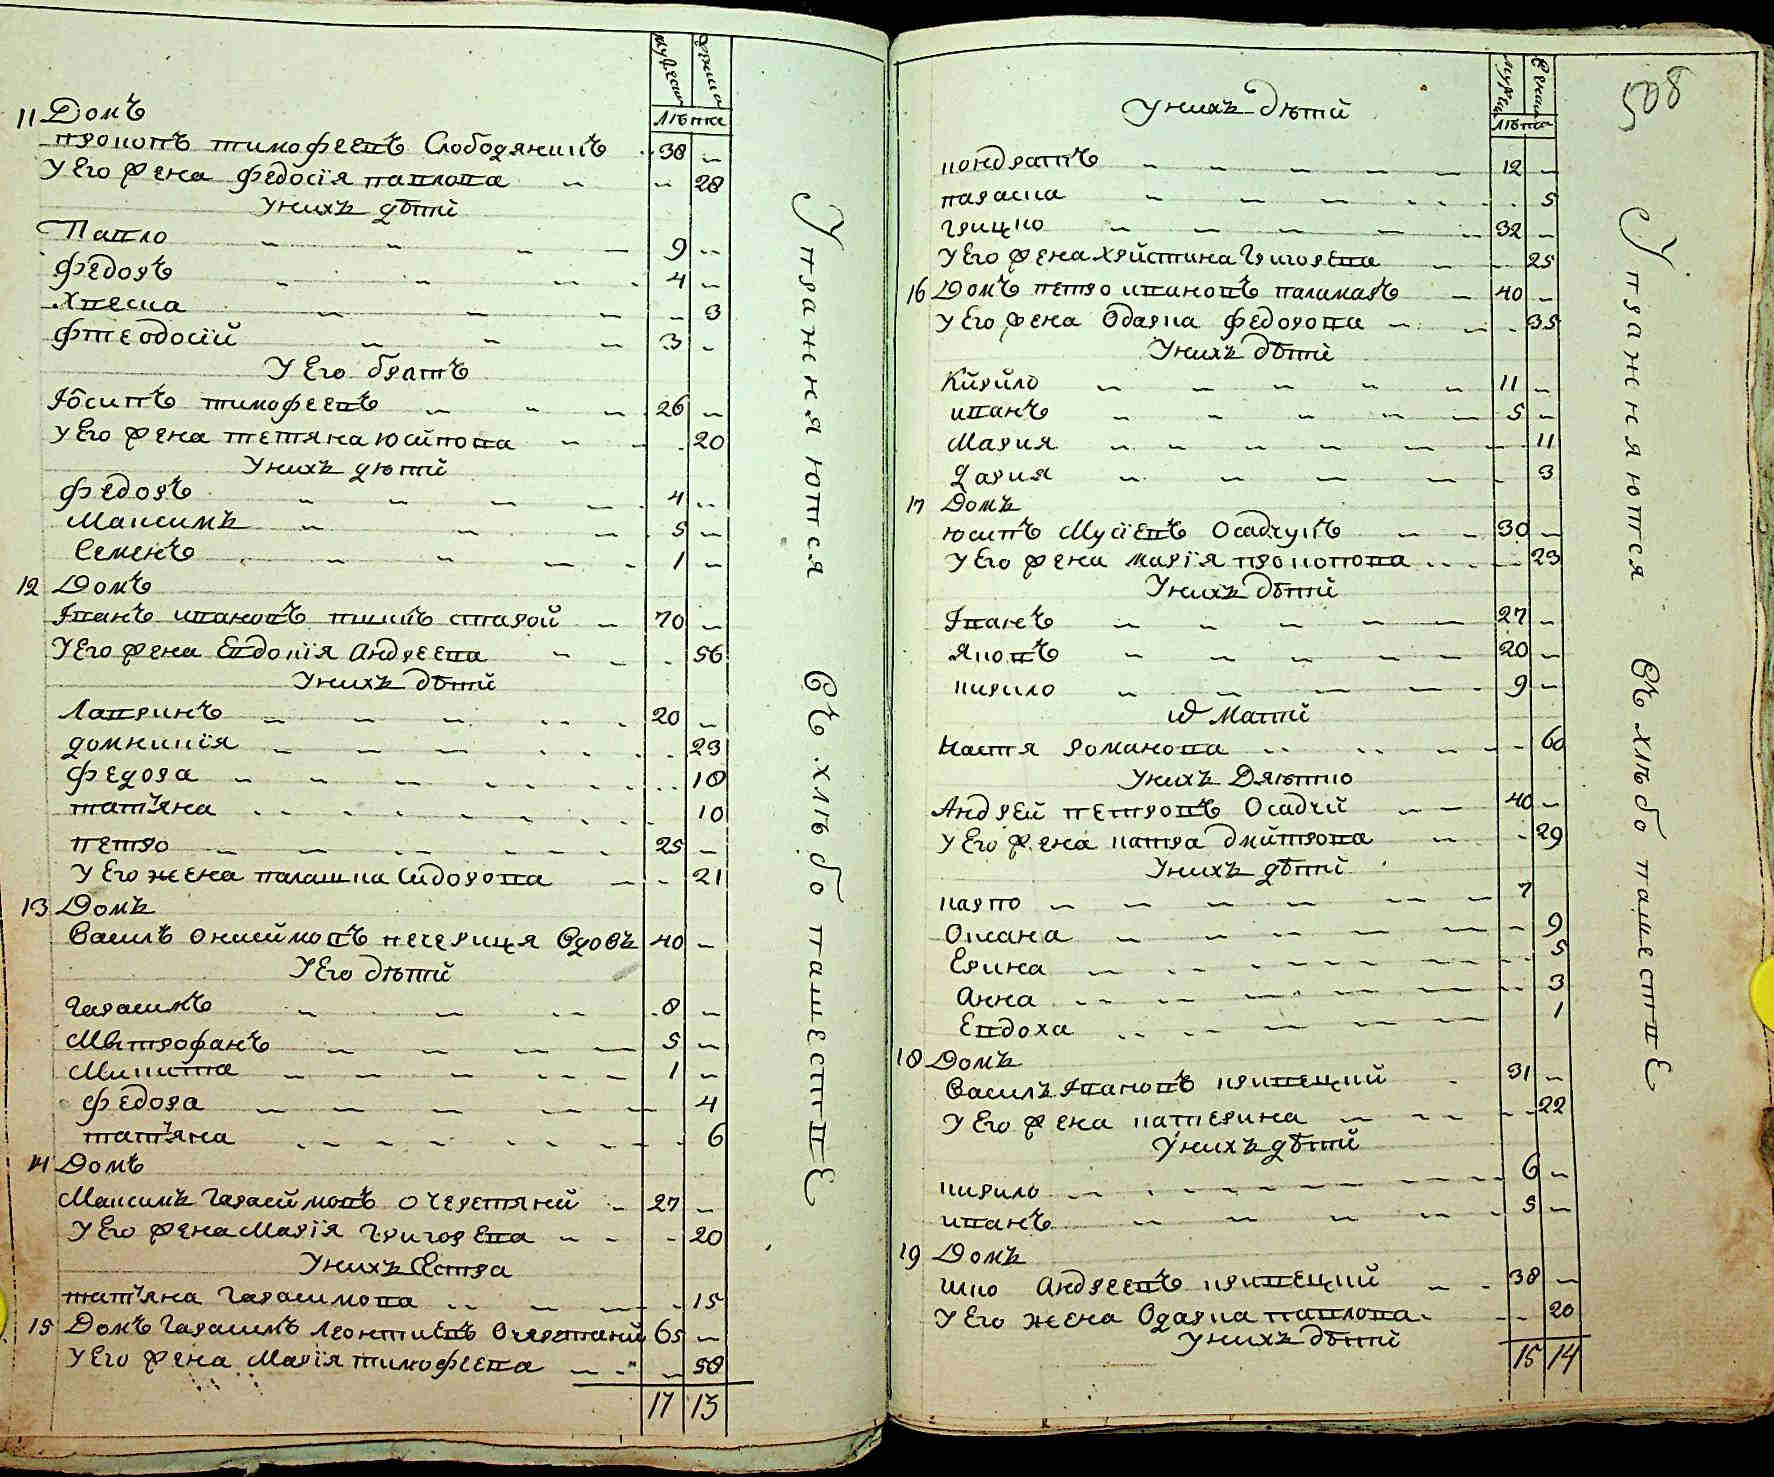 мужеска
женска
лѣта
11 Домъ
прокопъ тимофеевъ Слободяникъ 38
У Его жена федосія павлова 28
У нихъ дѣти
Павло 9
федоръ 4
Хвеска 3
фтеодосій 3
У Его братъ
Іосипъ тимофеевъ 26
У Его жена тетяна юсипова 20
У нихъ дѣти
федоръ 4
Максимъ 5
Семенъ 1
12 Домъ
Іванъ ивановъ старой 70
У Его жена Евдокія Андреева 56
У нихъ дѣти
Лавринъ 20
домникія 23
федора 18
тат'яна 10
петро 25
У Его жена палашка Сидорова 21
13 Домъ
Василъ онисимовъ печериця вдовъ 40
У Его дѣти
Гарасимъ 8
Митрофанъ 5
Микита 1
федора 4
тат'яна 6
14 Домъ
Максимъ Гарасимовъ очеретяній 27
У Его жена Марія Григорева 20
У нихъ Сестра
тат'яна Гарасимова 15
15 Домъ Гарасимъ Леонтиевъ Очеретяній 65
У Его жена Марія тимофеева 58
17 13
Упражняются въ хлѣбо пашествѣ
508
мужеска
женска
лѣта
У нихъ дѣти
кондратъ 12
параска 5
грицко 32
У Его жена Христина Григорева 25
16 Домъ петро ивановъ паламаръ 40
У Его жена Одарка федорова 35
У нихъ дѣти
Кирило 11
иванъ 5
Мария 11
дария 3
17 Домъ
юсипъ Мусіевъ Осадчукъ 30
У Его жена марія прокопова 23
У нихъ дѣти
Іванъ 27
яковъ 20
кирило 9
И Мати
Настя романова 60
У нихъ Дяѣтко
Андрей петровъ Осадчій 40
У Его жена катра дмитрова 29
У нихъ дѣти
карпо 7
Оксана 9
Ерина 5
Анна 3
Евдоха 1
18 Домъ
Василъ Ивановъ кривецкий 31
У Его жена катерина 22
У нихъ дѣти
кирило 6
иванъ 5
19 Домъ
илко андреевъ кривецкий 38
У Его жена Одарка павлова 20
У нихъ дѣти
15 14
Упражняются въ хлѣбо пашествѣ